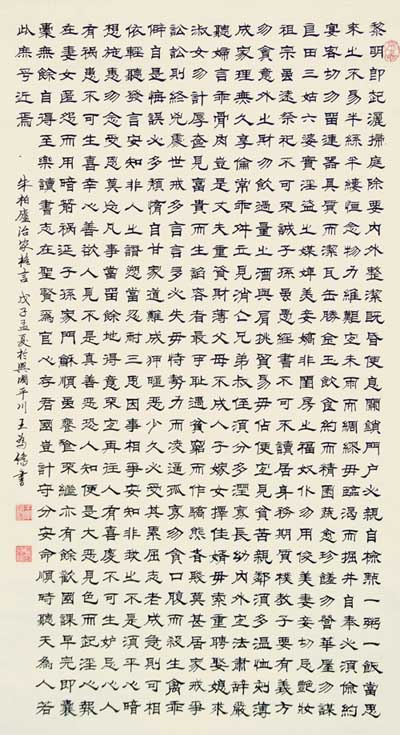 黎明即起灑掃庭除要內外整潔既昏便息關鎖門戶必親自檢點一粥一飯當思
來之不易半絲半縷恒念物力維艱宜未雨而綢繆毋臨渴而掘井自奉必須儉約
宴客切勿留連器具質而潔瓦缶勝金玉飲食約而精園蔬愈珍饈勿營華屋勿謀
良田三姑六婆實淫盜之媒婢美妾嬌非閨房之福奴僕勿用俊美妻妾切忌艷妝
祖宗雖遠祭祀不可不誠子孫雖愚經書不可不讀居身務期質樸教子要有義方
勿貪意外之財勿飲過量之酒與肩挑貿易毋佔便宜見貧苦親鄰須多溫恤刻薄
成家理無久享倫常乖舛立見消亡兄弟叔侄須分多潤寡長幼內外宜法肅辭嚴
聽婦言乖骨肉豈是丈夫重資財薄父母不成人子嫁女擇佳婿毋索重聘娶媳求
淑女勿計厚奩見富貴而生諂容者最可恥遇貧窮而作驕態者賤莫甚居家戒爭
訟訟則終凶處世戒多言言多必失毋恃勢力而凌逼孤寡勿貪口腹而殺生禽乖
僻自是悔誤必多頹惰自甘家道難成狎暱惡少久必受其累屈志老成急則可相
依輕聽發言安知非人之譖愬當忍耐三思因事相爭安知非我之不是須平心暗
想施惠勿念受恩莫忘凡事當留餘地得意不宜再往人有喜慶不可生妒忌心人
有禍患不可生喜幸心善欲人見不是真善惡恐人知便是大惡見色而起淫心報
在妻女匿怨而用暗箭禍延子孫家門穌順雖饔飧不繼亦有餘歡國課早完即囊
橐無餘自得至樂讀書志在聖賢為官心存君國豈計守分安命順時聽天為人若
此庶乎近焉
朱柏廬治家格言 戊子孟夏於興國平川 王為書